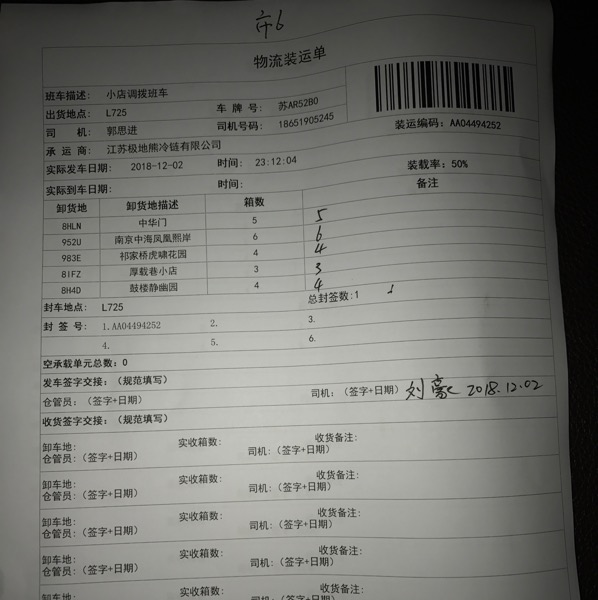 市6
物流装运单
班车描述: 小店调拨班车
出货地点: L725 车 牌 号: 苏AR52B0
司 机: 郭思进 司机号码: 18651905245 装运编码: AA04494252
承 运 商: 江苏极地熊冷链有限公司
实际发车日期: 2018-12-02 时间: 23:12:04 装载率: 50%
实际到车日期: 时间: 备注
卸货地 卸货地描述 箱数
8HLN 中华门 5 5
952U 南京中海凤凰熙岸 6 6
983E 祁家桥虎啸花园 4 4
8IFZ 厚载巷小店 3 3
8H4D 鼓楼静幽园 4 4
封车地点: L725 总封签数:1
封 签 号: 1.AA04494252 2. 3.
4. 5. 6.
空承载单元总数: 0
发车签字交接: (规范填写)
仓管员: (签字+日期) 司机: (签字+日期) 刘豪 2018.12.02
收货签字交接: (规范填写)
卸车地: 实收箱数: 收货备注:
仓管员: (签字+日期) 司机: (签字+日期)
卸车地: 实收箱数: 收货备注:
仓管员: (签字+日期) 司机: (签字+日期)
卸车地: 实收箱数: 收货备注:
仓管员: (签字+日期) 司机: (签字+日期)
卸车地: 实收箱数: 收货备注:
仓管员: (签字+日期) 司机: (签字+日期)
卸车地: 实收箱数: 收货备注: